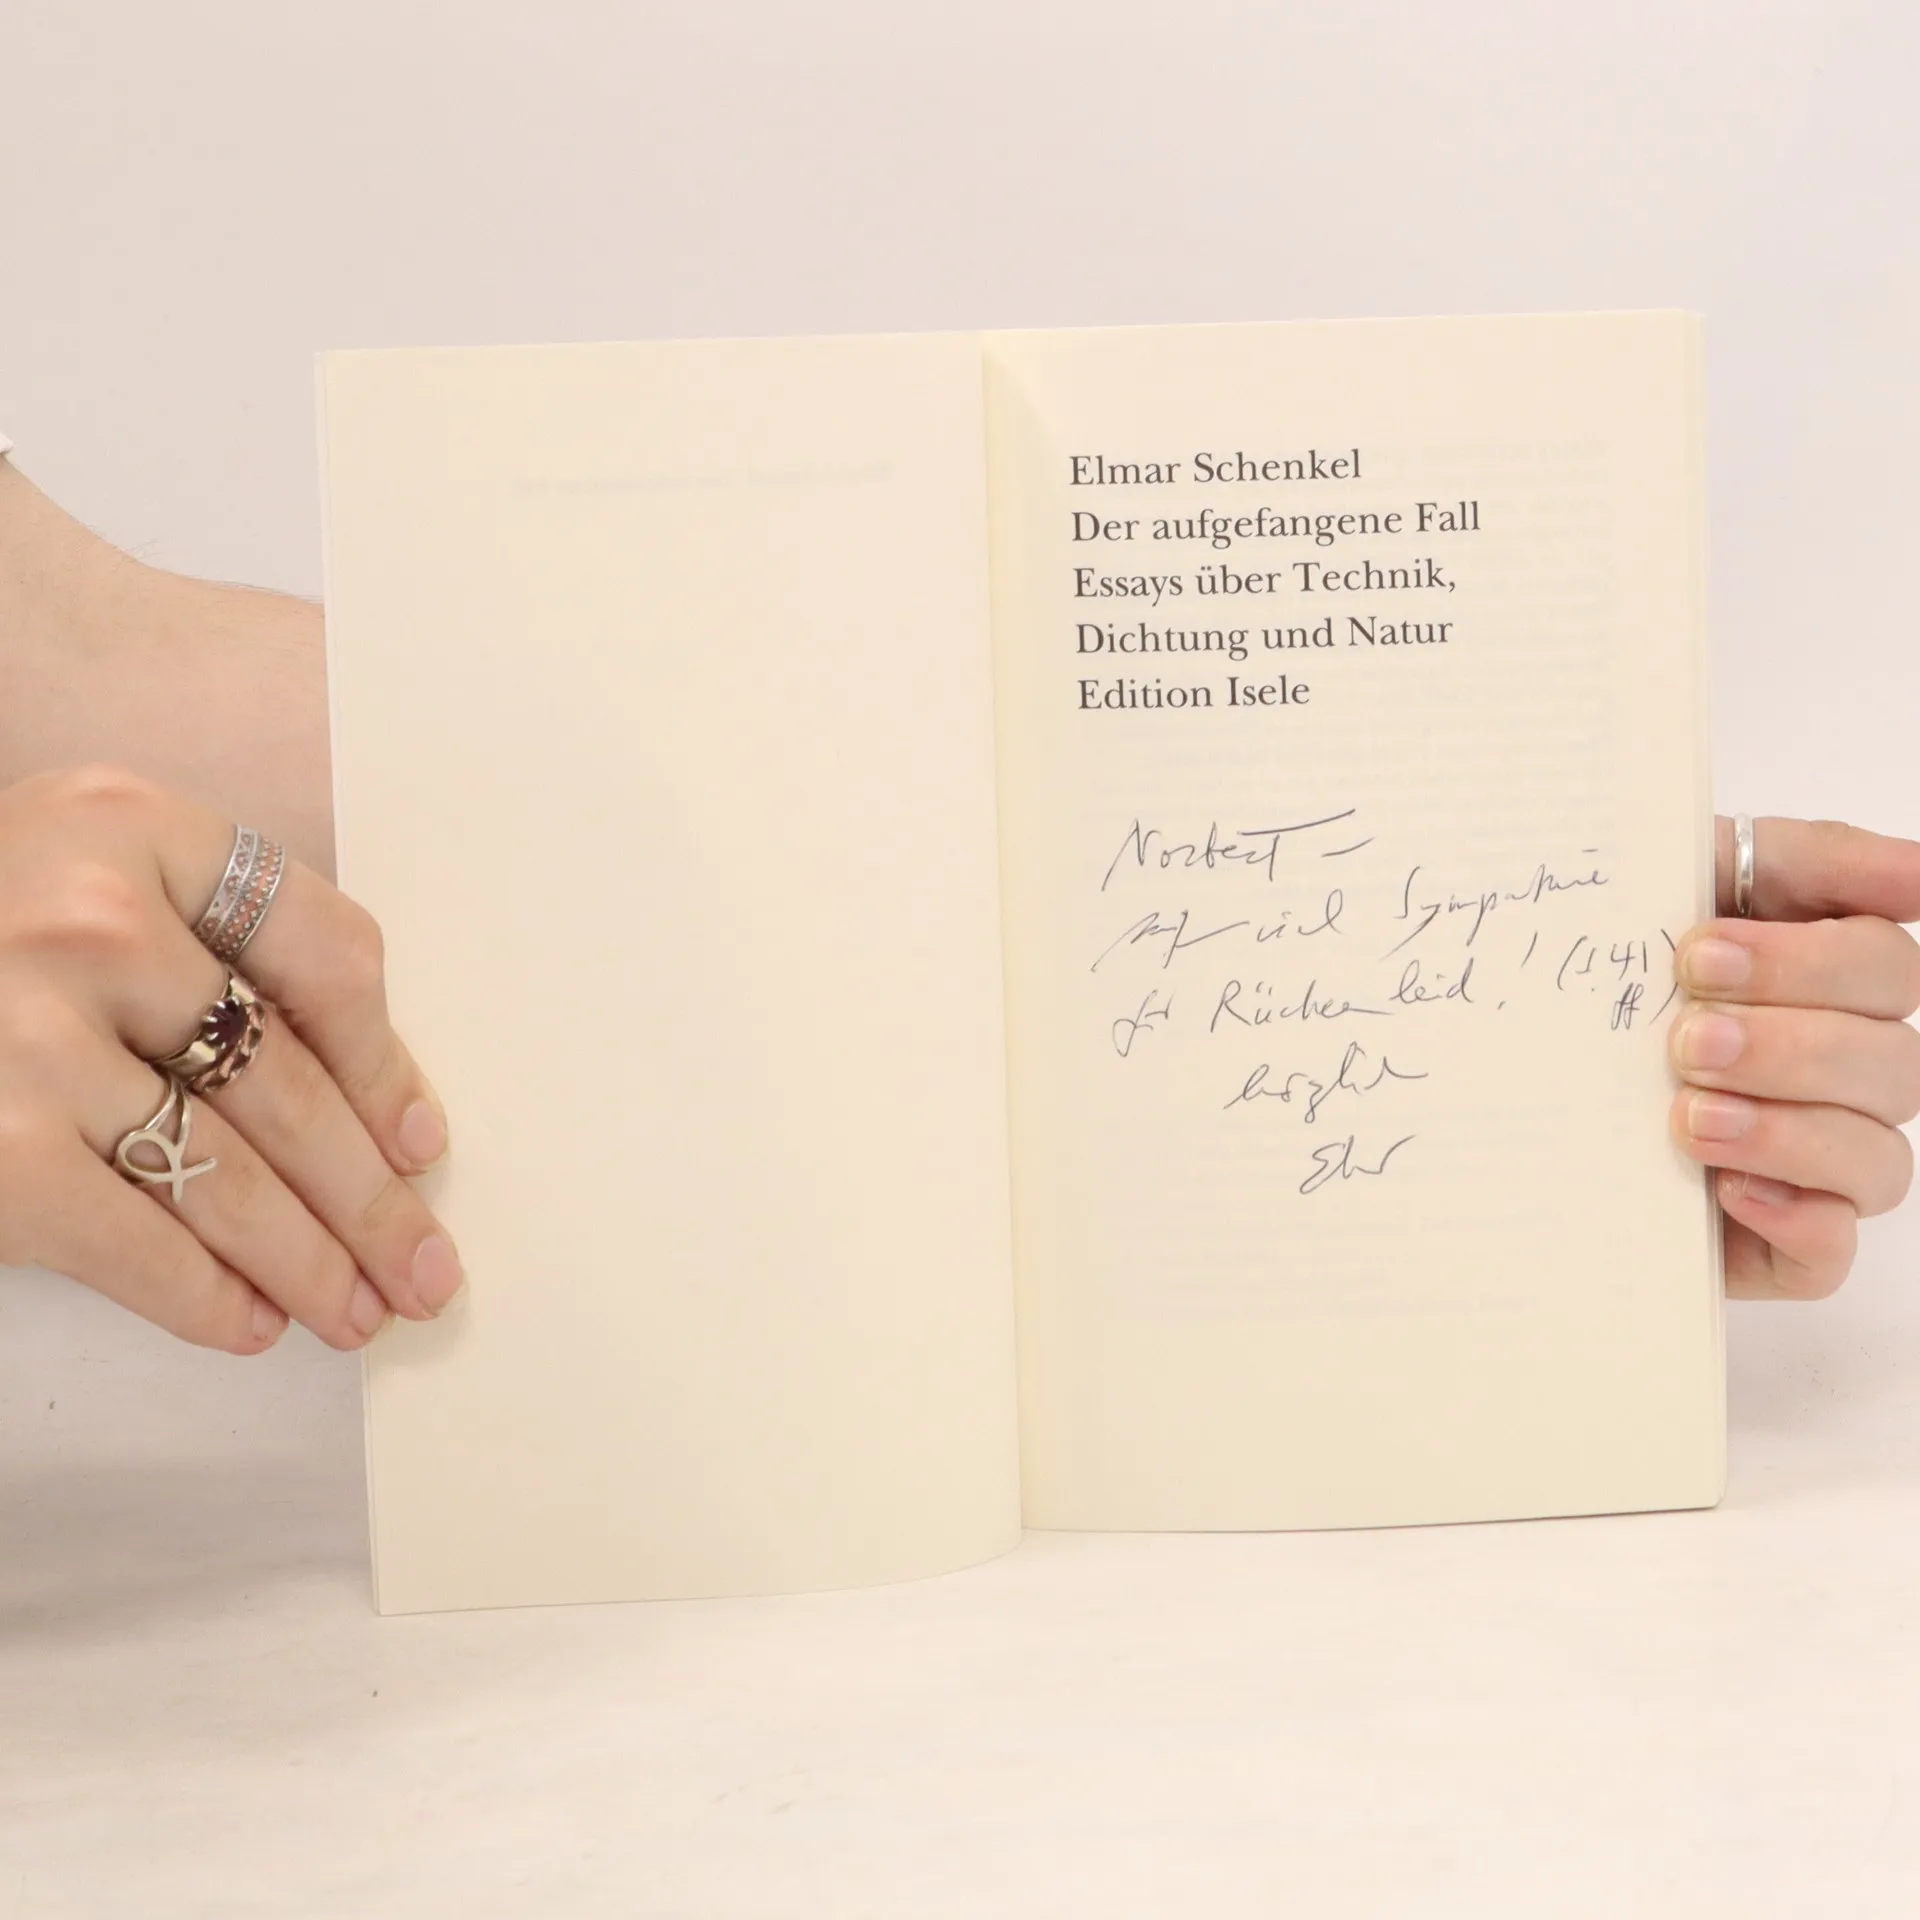 Elmar Schenkel
Der aufgefangene Fall
Essays über Technik,
Dichtung und Natur
Edition Isele
Norbert –
mit viel Sympathie
für Rückenleid! (S. 41
ff)
herzlich
Elmar